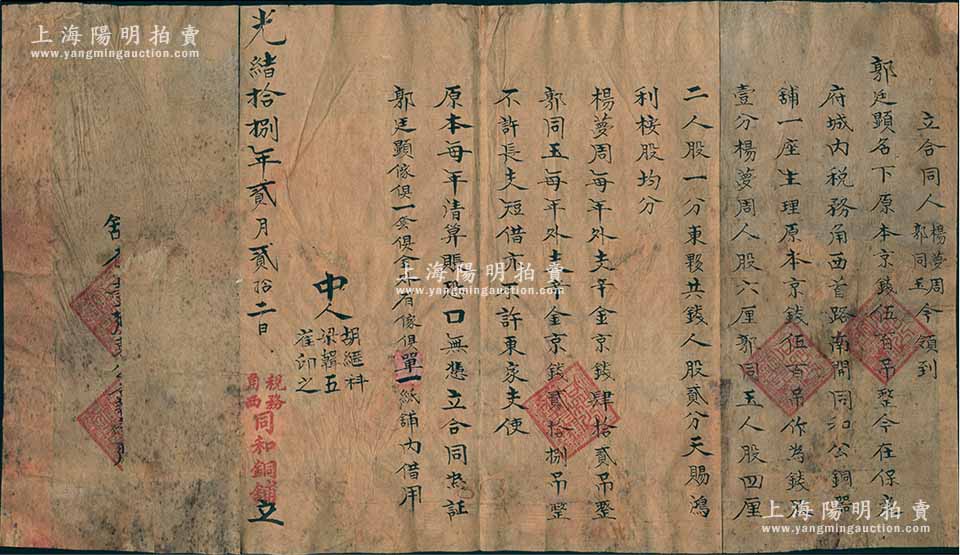 立合同人楊夢周郭同玉今領到
郭廷顕名下原本京錢伍百吊整今在保定
府城内税務角西首路南開同和公銅器
舖一座生理原本京錢伍百吊作為錢股
壹分楊夢周人股六厘郭同玉人股四厘
二人股一分東夥共錢人股貳分天賜鴻
利桉股均分
楊夢周每年外支辛金京錢肆拾貳吊整
郭同玉每年外支辛金京錢貳拾捌吊整
不許長支短借亦不許東家夫使
原本每年清算賬恐口無憑立合同為証
郭廷顕傢俱一套俱全有傢俱單一紙舖内借用
中人
胡繼科
梁輯五
崔印之
光緒拾捌年貳月貳拾二日
税務角西同和銅舖立
上海陽明拍賣
www.yangmingauction.com
上海陽明拍賣
www.yangmingauction.com
上海陽明拍賣
www.yangmingauction.com
上海陽明拍賣
www.yangmingauction.com
上海陽明拍賣
www.yangmingauction.com